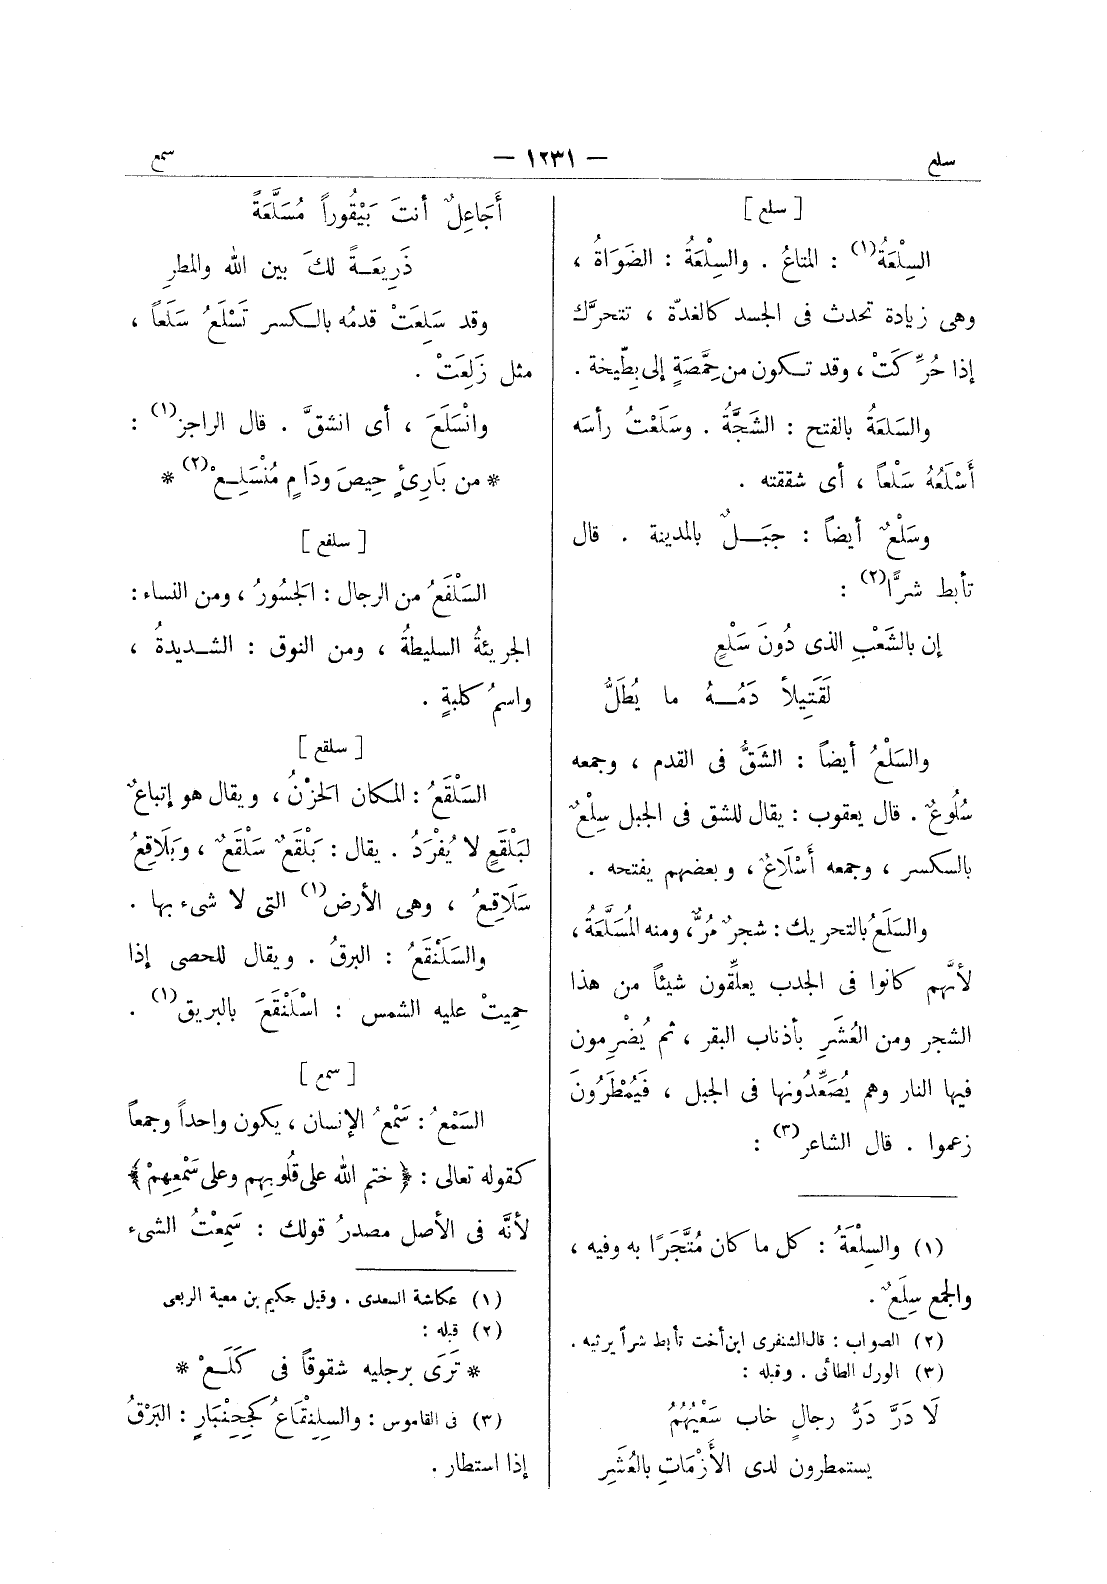 سلع — ١٢٣١ — سمع
[ سلع ]
السِلْعَةُ(١) : المتاعُ . والسِلْعَةُ : الضَوَاةُ ،
وهى زيادة تحدث فى الجسد كالغدّة ، تتحرَّك
إذا حُرِّكَتْ ، وقد تكون من حِمَّصَةٍ إلى بِطّيخة .
والسَلْعَةُ بالفتح : الشَجَّةُ . وسَلَعْتُ رأسَه
أَسْلَعُهُ سَلْعاً ، أى شققته .
وسَلْعٌ أيضاً : جبَـلٌ بالمدينة . قال
تأبط شرًّا(٢) :
إن بالشَعْبِ الذى دُونَ سَلْعٍ
لَقَتِيلاً دَمُـهُ ما يُطَلُّ
والسَلْعُ أيضاً : الشَقُّ فى القدم ، وجمعه
سُلُوعٌ . قال يعقوب : يقال للشق فى الجبل سِلْعٌ
بالكسر ، وجمعه أَسْلَاعٌ ، وبعضهم يفتحه .
والسَلَعُ بالتحريك : شجرٌ مُرٌّ ، ومنه المُسَلَّعَةُ ،
لأنَّهم كانوا فى الجدب يعلِّقون شيئاً من هذا
الشجر ومن العُشَرِ بأذناب البقر ، ثم يُضْرِمون
فيها النار وهم يُصَعِّدُونها فى الجبل ، فَيُمْطَرُونَ
زعموا . قال الشاعر(٣) :
(١) والسِلْعَةُ : كل ما كان مُتَّجَرًا به وفيه ،
والجمع سِلَعٌ .
(٢) الصواب : قال الشنفرى ابن أخت تأبط شراً يرثيه .
(٣) الورل الطائى . وقبله :
لَا دَرَّ دَرُّ رجالٍ خاب سَعْيُهُمُ
يستمطرون لدى الأَزْمَاتِ بالعُشَرِ
أَجَاعِلٌ أنتَ بَيْقُوراً مُسَلَّعَةً
ذَرِيعَـةً لكَ بين الله والمطرِ
وقد سَلِعَتْ قدمُه بالكسر تَسْلَعُ سَلَعاً ،
مثل زَلِعَتْ .
وانْسَلَعَ ، أى انشقَّ . قال الراجز(١) :
* من بَارِئٍ حِيصَ ودَامٍ مُنْسَلِعْ(٢) *
[ سلفع ]
السَلْفَعُ من الرجال : الجَسُورُ ، ومن النساء :
الجريئةُ السليطةُ ، ومن النوق : الشـديدةُ ،
واسمُ كلبةٍ .
[ سلقع ]
السَلْقَعُ : المكان الحَزْنُ ، ويقال هو إتباعٌ
لبَلْقَعٍ لا يُفْرَدُ . يقال : بَلْقَعٌ سَلْقَعٌ ، وبَلَاقِعُ
سَلَاقِعُ ، وهى الأرض(١) التى لا شىء بها .
والسَلَنْقَعُ : البرقُ . ويقال للحصى إذا
حمِيتْ عليه الشمس : اسْلَنْقَعَ بالبريق(١) .
[ سمع ]
السَمْعُ : سَمْعُ الإنسان ، يكون واحداً وجمعاً
كقوله تعالى : ﴿ ختم الله على قُلُوبِهم وعلى سَمْعِهِمْ ﴾
لأنَّه فى الأصل مصدرُ قولك : سَمِعْتُ الشىء
(١) عكاشة السعدى . وقيل حكيم بن معية الربعى
(٢) قبله :
* تَرَى برجليه شقوقاً فى كَلَعْ *
(٣) فى القاموس : والسِلِنْقَاعُ كَجِحِنْبَارٍ : البَرْقُ
إذا استطار .